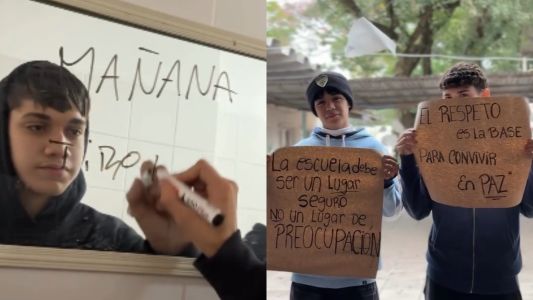 MAÑANA
La escuela debe
ser un Lugar
seguro
no un Lugar de
PREOCUPACIÓN
EL RESPETO
es la BASE
PARA CONVIVIR
en PAZ"